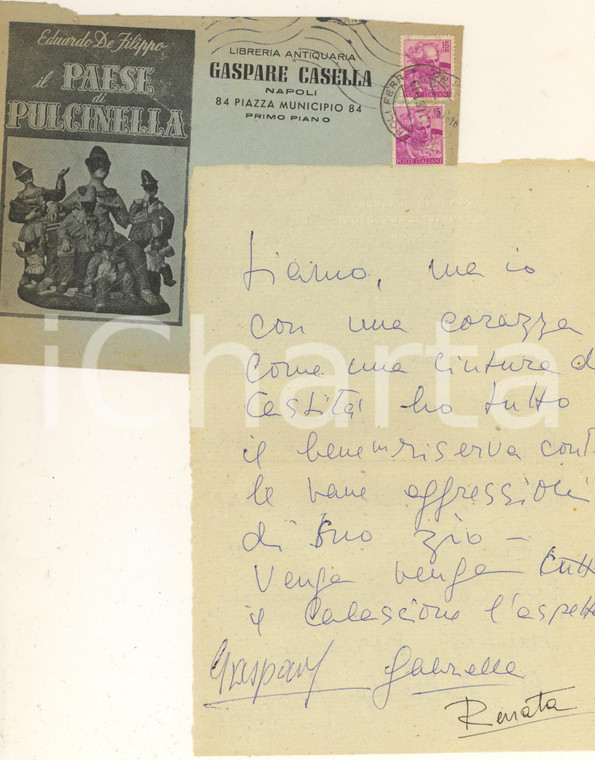 Eduardo De Filippo
il PAESE
di
PULCINELLA
LIBRERIA ANTIQUARIA
GASPARE CASELLA
NAPOLI
84 PIAZZA MUNICIPIO 84
PRIMO PIANO
15
POSTE ITALIANE
15
POSTE ITALIANE
iCharta
siamo, ma io
con una corazza
come una cintura d
castità ho tutto
il bene in riserva cont
le vane aggressioni
di suo zio —
Venga venga tutt
il Calascione l'aspett
Gaspare Gabriella
Renata